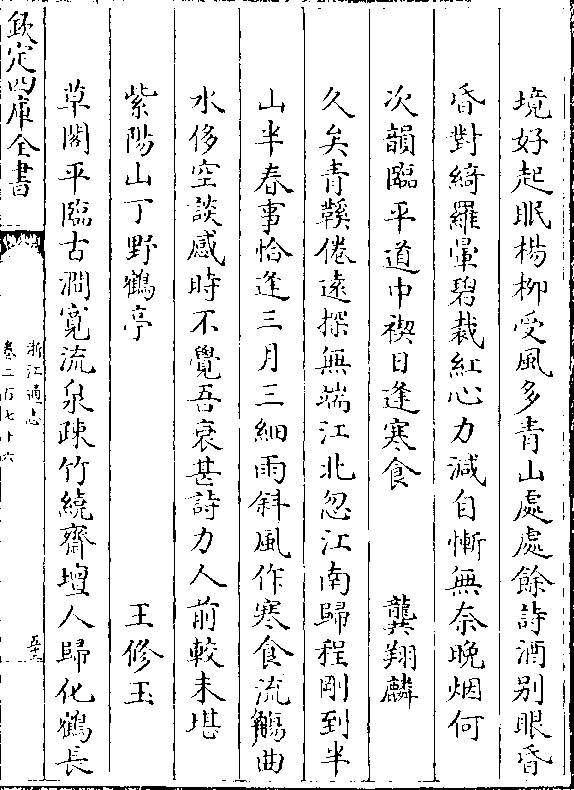 境好起眠楊柳受風多青山處處餘詩酒別眼昏
昏對綺羅暈碧裁紅心力減自慚無奈晚烟何
次韻臨平道中禊日逢寒食　龔翔麟
久矣青鞵倦遠探無端江北忽江南歸程剛到半
山半春事恰逢三月三細雨斜風作寒食流觴曲
水侈空談感時不覺吾衰甚詩力人前較未堪
紫陽山丁野鶴亭　王修玉
草閣平臨古澗寬流泉疎竹繞齋壇人歸化鶴長
欽定四庫全書
浙江通志
卷二百七十六